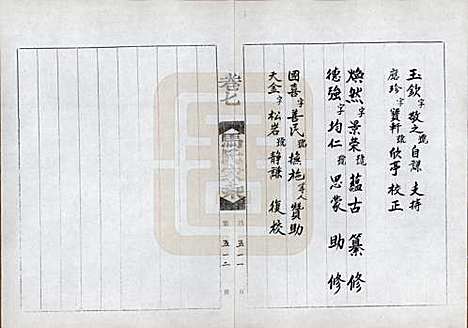 玉欽字敬之號自謙 夫持
應珍字賢軒號欣亭 校正
煥然字景榮號蘊古 纂修
德強字均仁號思蒙 助修
國喜字善民號樵施 贊助
天金字松岩號靜謙 復校
卷七
馬氏家乘
五一一
五一二